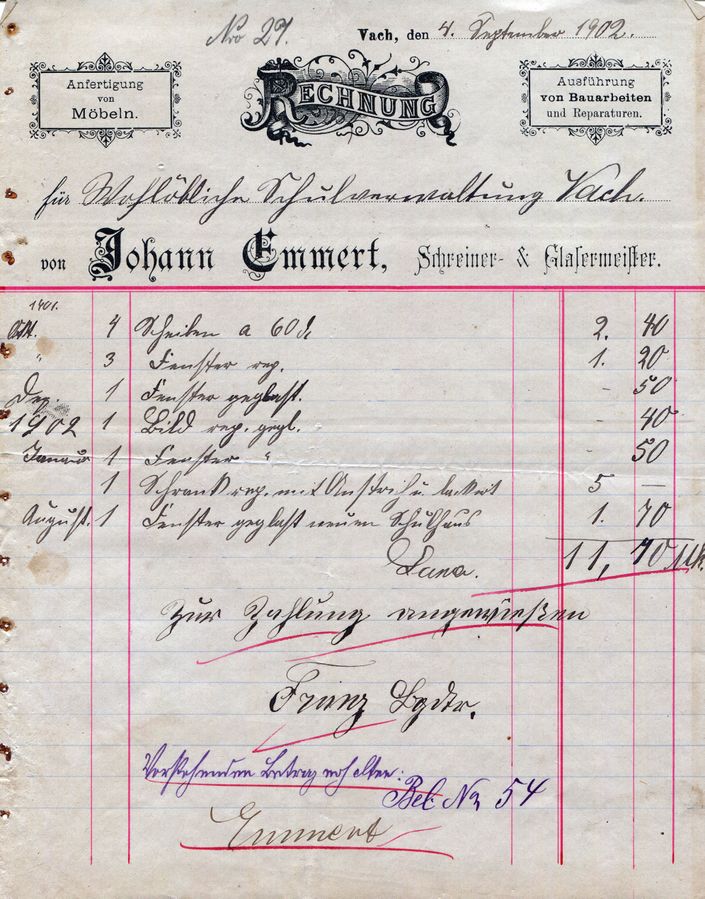 Nro 27.
Vach, den 4. September 1902.
Anfertigung
von
Möbeln.
RECHNUNG
Ausführung
von Bauarbeiten
und Reparaturen.
für Wohllöbliche Schulverwaltung Vach.
von Johann Emmert, Schreiner- & Glasermeister.
1901.
Okt. 4 Scheiben a 60 ₰ 2. 40
" 3 Fenster rep. 1. 20
Dez. 1 Fenster geglast. - 50
1902 1 Bild rep. gegl. 40
Januar 1 Fenster " - 50
1 Schrank rep. mit Anstrich u. lackert 5 —
August. 1 Fenster geglast neuen Schulhaus 1. 70
Suma. 11,70 Mk.
Zur Zahlung angewießen
Bgdtr.
Vorstehenden Betrag erhalten:
Bel. No 54
Emmert